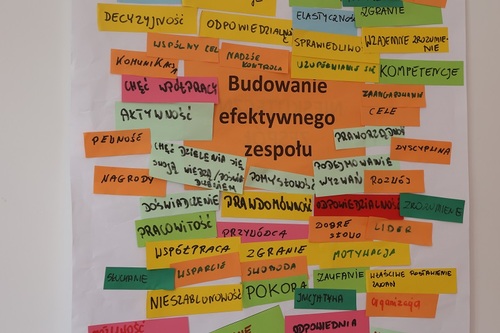 DECYZYJNOŚĆ
ELASTYCZNOŚĆ
ZGRANIE
WSPÓLNY CEL
NADZÓR
KONTROLA
SPRAWIEDLIWO
WZAJEMNE ZROZUMIE-
NIE
UZUPEŁNIANIE SIĘ
KOMPETENCJE
CHĘĆ WSPÓŁPRACY
Budowanie
efektywnego
zespołu
CELE
AKTYWNOŚĆ
PEWNOŚĆ
DYSCYPLINA
CHĘĆ DZIELENIA SIĘ
POMYSŁOWOŚĆ
PODEJMOWANIE
WYZWAŃ
NAGRODY
ROZWÓJ
DOŚWIADCZENIE
PRAWDOMÓWNOŚĆ
ODPOWIEDZIALNOŚĆ
ZROZUMIENIE
PRACOWITOŚĆ
PRZYWÓDCA
DOBRE
SŁOWO
LIDER
WSPÓŁPRACA
ZGRANIE
MOTYWACJA
SŁUCHANIE
WSPARCIE
SWOBODA
ZAUFANIE
WŁAŚCIWE POSTAWIENIE
ZADAŃ
NIESZABLONOWOŚĆ
POKORA
INICJATYWA
Organizacja
ODPOWIEDNIA